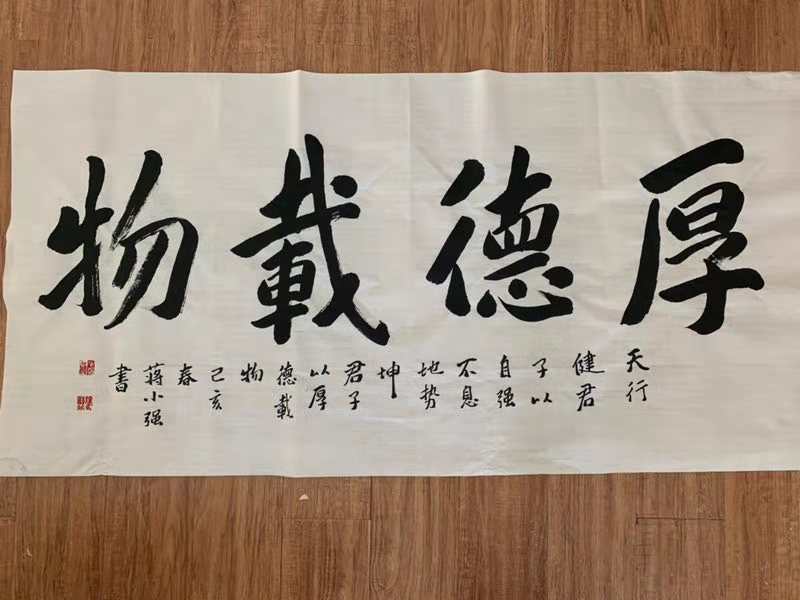 厚德載物
天行
健君
子以
自强
不息
地势
坤
君子
以厚
德載
物
己亥
春
蒋小强
書